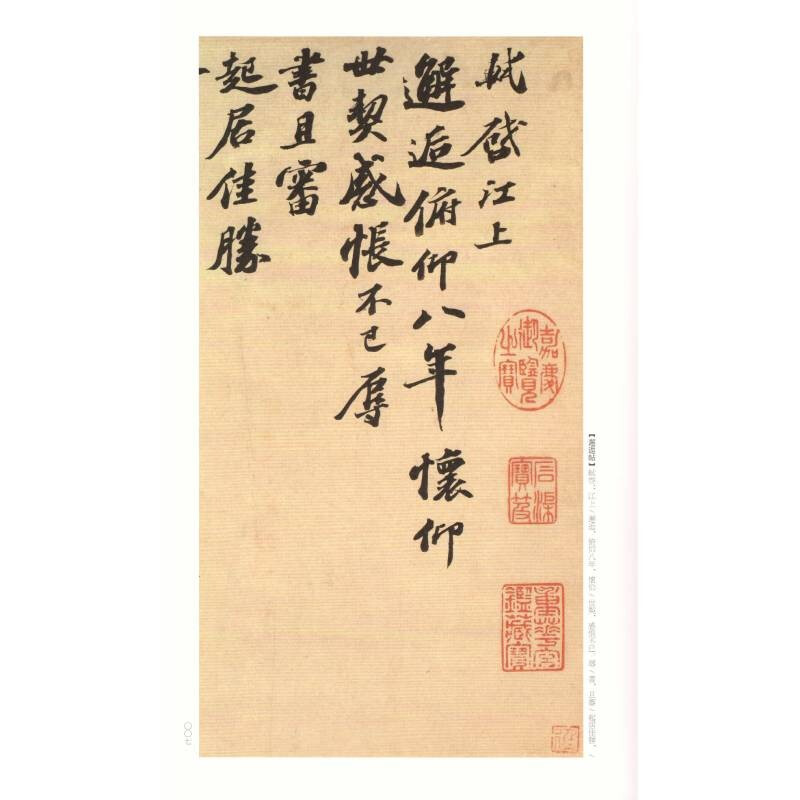 軾啓江上
邂逅俯仰八年懷仰
世契感悵不已辱
書且審
起居佳勝
嘉慶御覽之寶
石渠寶笈
重華宮鑑藏寶
【邂逅帖】軾啓：江上／邂逅，俯仰八年，懷仰／世契，感悵不已。辱／書，且審／起居佳勝，／
〇〇七